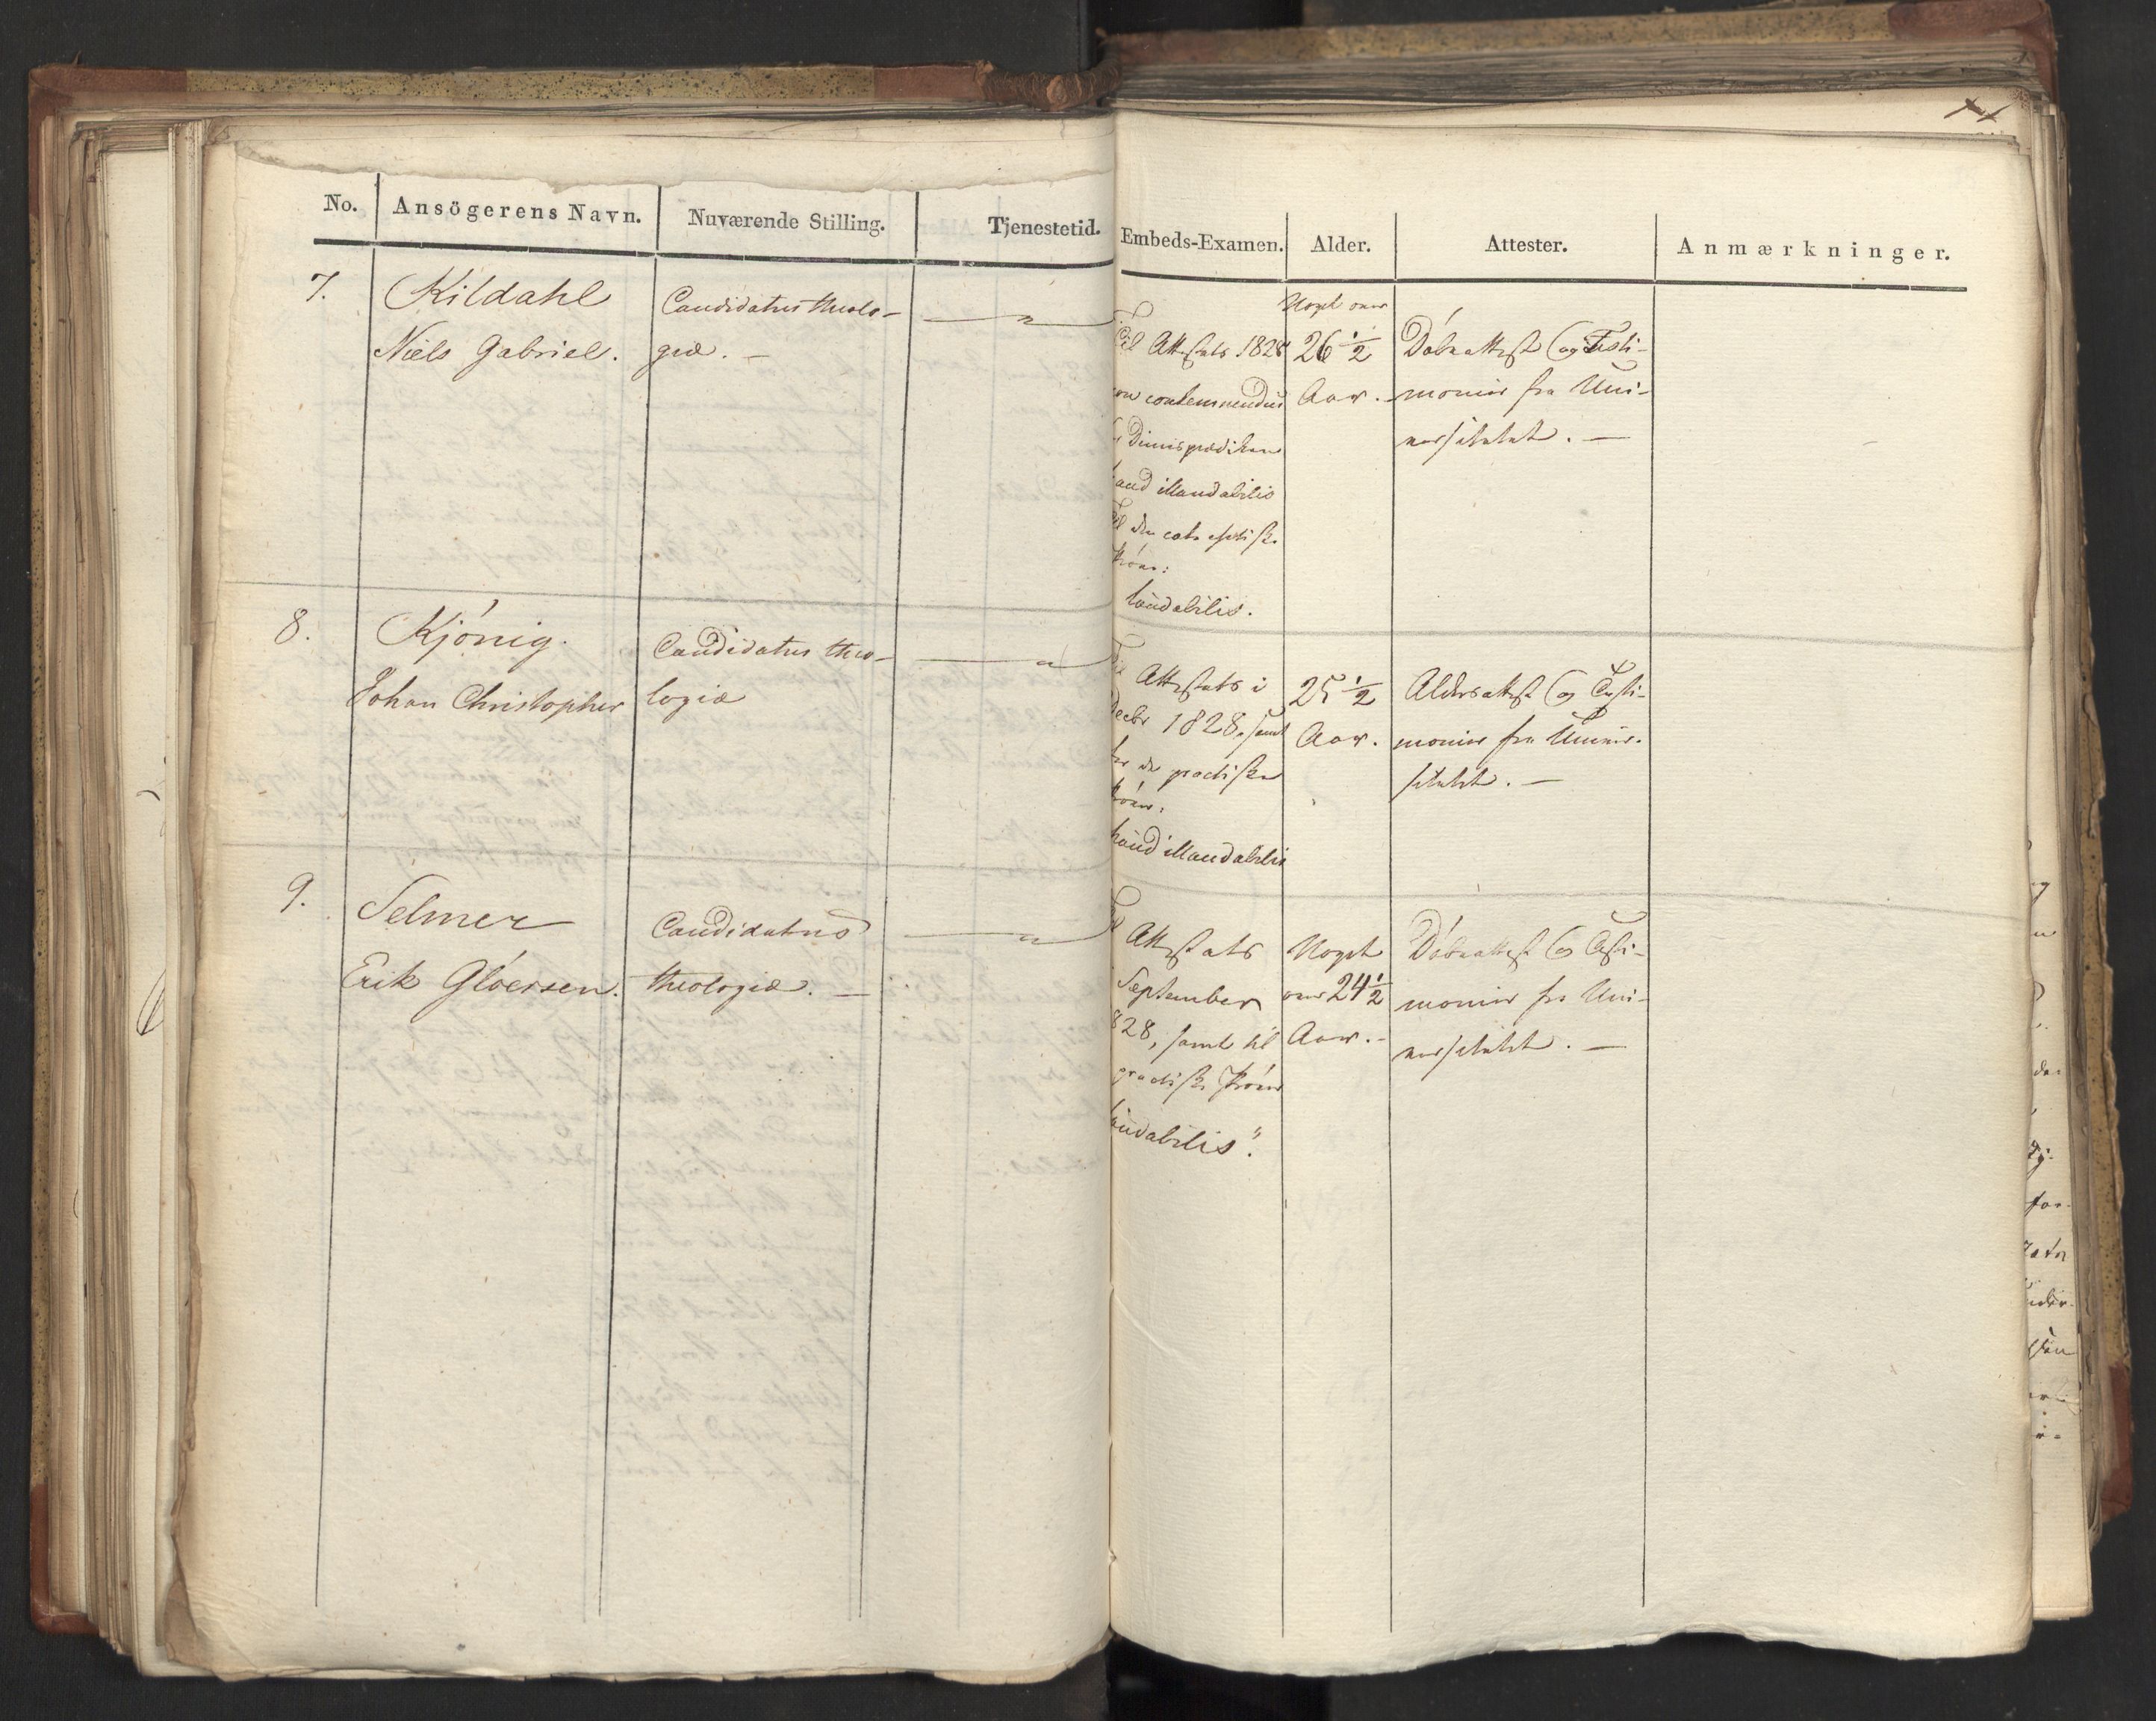 No.
Ansögerens Navn.
Nuværende Stilling.
Tjenestetid.
Embeds-Examen.
Alder.
Attester.
Anmærkninger.
7.
Kildahl
Niels Gabriel.
Candidatus theolo-
giæ. —
— " —
Til Attestats 1828
non contemnendus
Dimisprædiken
haud illaudabilis
Til den catechetiske
Prøve:
laudabilis.
Noget over
26 1/2
Aar.
Døbeattest og Testi-
monier fra Uni-
versitetet. —
8.
Kjönig.
Johan Christopher
Candidatus theo-
logiæ
— " —
Til Attestats i
Decbr 1828, samt
for de practiske
Prøver:
haud illaudabilis
25 1/2
Aar.
Aldersattest og Testi-
monier fra Univer-
sitetet. —
9.
Selmer
Erik Gløersen.
Candidatus
theologiæ. —
— " —
Til Attestats
September
1828, samt til
practiske Prøver
laudabilis".
Noget
over 24 1/2
Aar. -
Døbeattest og Testi-
monier fra Uni-
versitetet. —